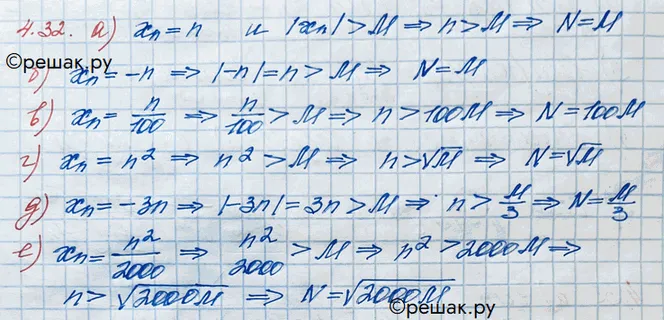 4.32. а) xₙ = n и |xₙ| > M ⇒ n > M ⇒ N = M
©решак.ру
б) xₙ = -n ⇒ |-n| = n > M ⇒ N = M
в) xₙ = n/100 ⇒ n/100 > M ⇒ n > 100M ⇒ N = 100M
г) xₙ = n² ⇒ n² > M ⇒ n > √M ⇒ N = √M
д) xₙ = -3n ⇒ |-3n| = 3n > M ⇒ n > M/3 ⇒ N = M/3
е) xₙ = n²/2000 ⇒ n²/2000 > M ⇒ n² > 2000M ⇒
n > √2000M ⇒ N = √2000M
©решак.ру